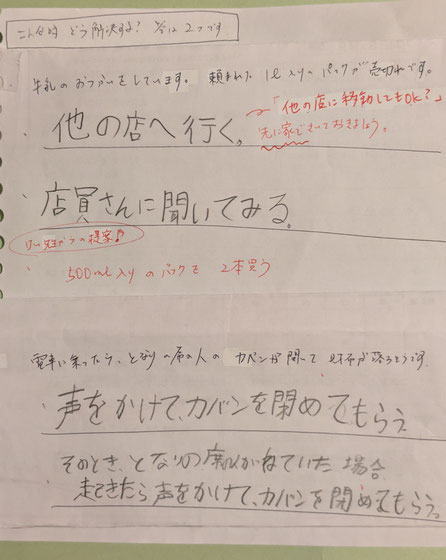 こんな時 どう解決する? 答は2つです
牛乳のおつかいをしています。頼まれた 1ℓ入りのパックが売切れです。
・他の店へ行く。
「他の店に移動してもOK?」
先に家できいておきましょう。
・店員さんに聞いてみる。
先生からの提案♪
・500ml入りのパックを 2本買う
電車に乗ったら、となりの席の人の カバンが開いて 財布が落ちそうです。
・声をかけて、カバンを閉めてもらう
そのとき、となりの席がねていた場合、
起きてきたら声をかけて、カバンを閉めてもらう。